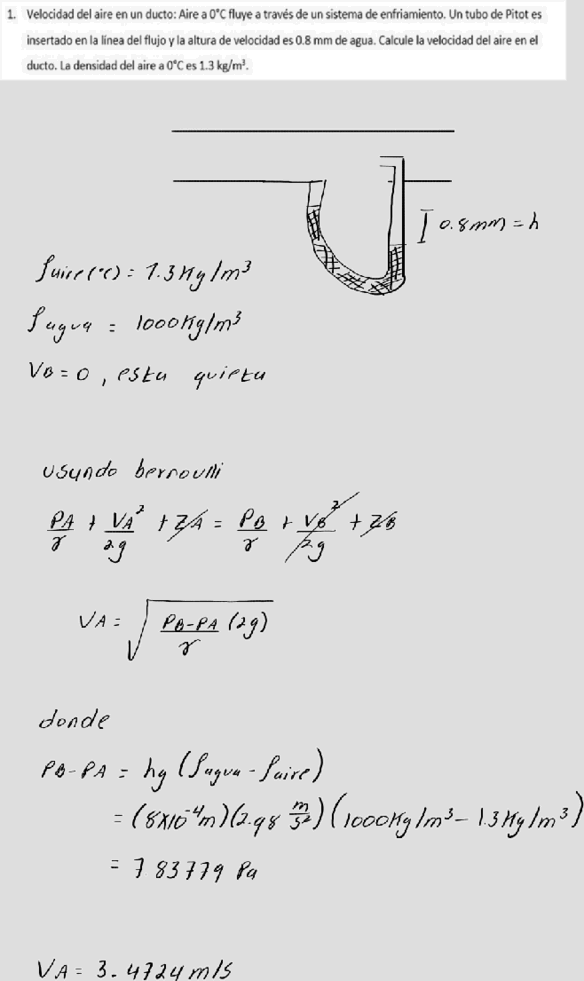 1. Velocidad del aire en un ducto: Aire a 0°C fluye a través de un sistema de enfriamiento. Un tubo de Pitot es
insertado en la línea del flujo y la altura de velocidad es 0.8 mm de agua. Calcule la velocidad del aire en el
ducto. La densidad del aire a 0°C es 1.3 kg/m³.
0.8mm = h
ρaire(°c) = 1.3 Kg/m³
ρagua = 1000 Kg/m³
VB = 0, esta quieta
usando bernoulli
PA/γ + VA²/2g + ZA = PB/γ + VB²/2g + ZB
VA = √(PB-PA/γ (2g))
donde
PB-PA = hg (ρagua - ρaire)
= (8x10⁻⁴m)(2.98 m/s²)(1000Kg/m³ - 1.3Kg/m³)
= 7 83779 Pa
VA = 3.4724 m/s